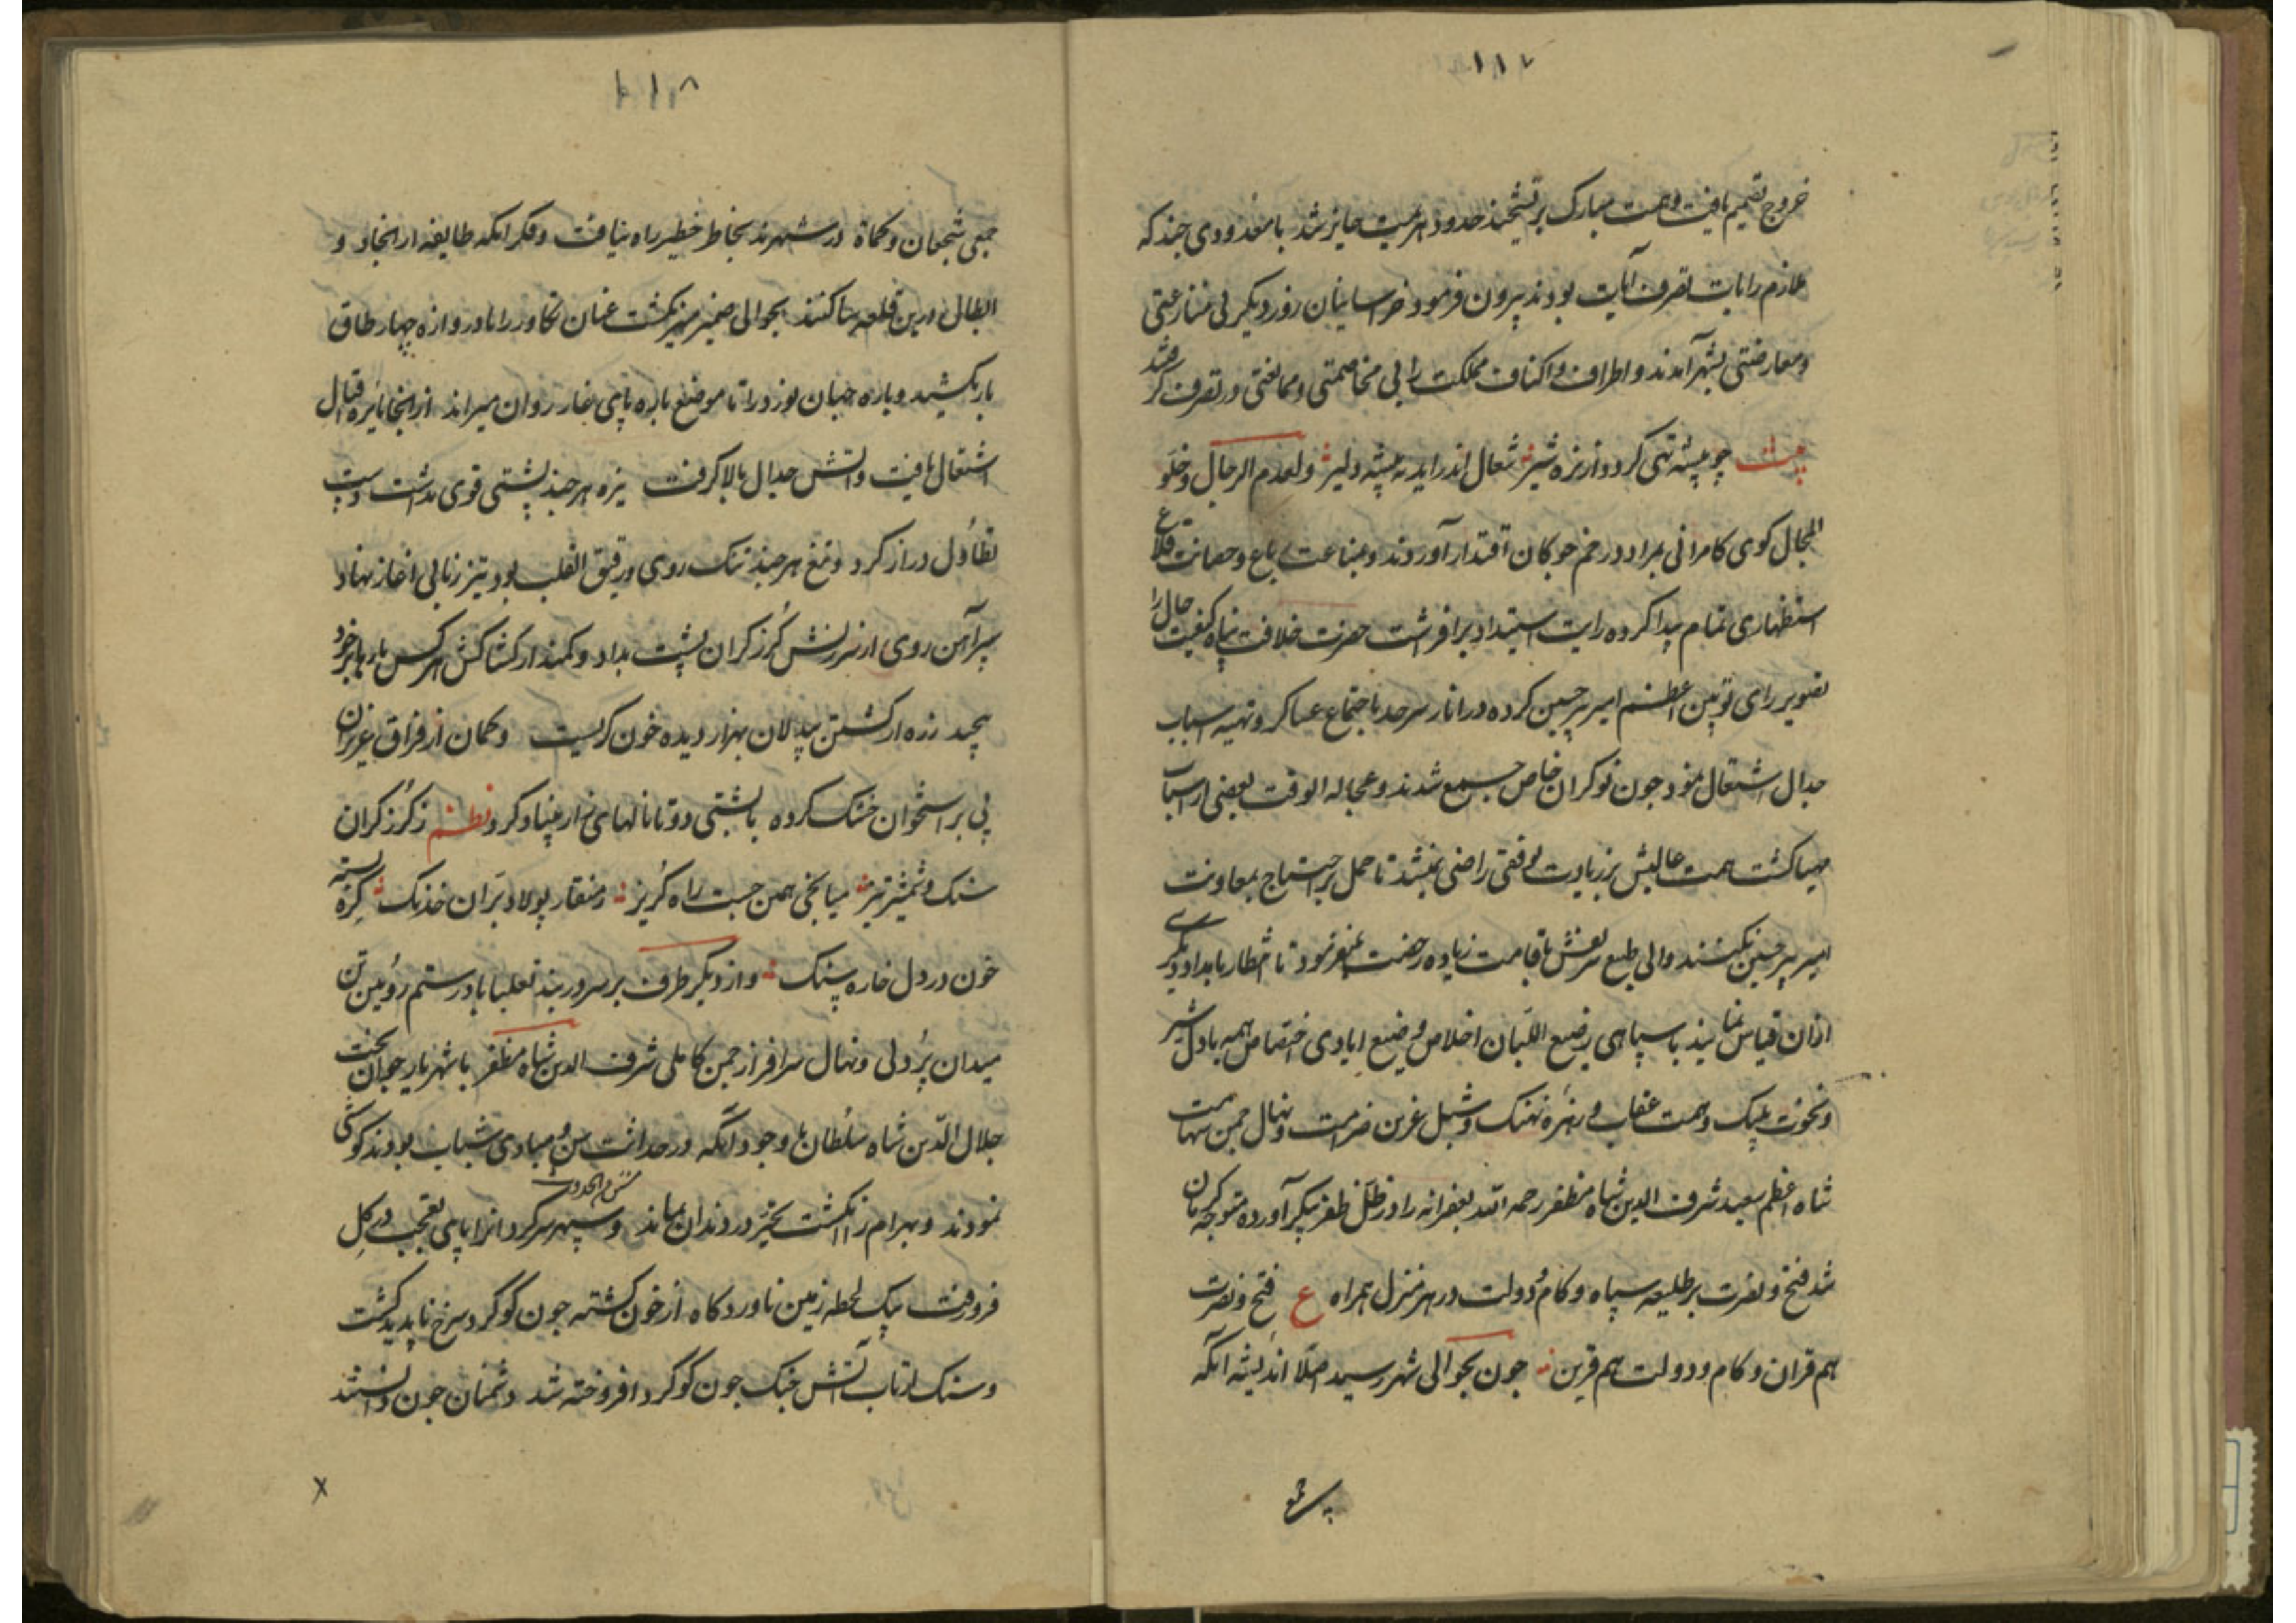 ۱۱۷
خروج تصمیم یافت و همت مبارک بر تشحیذ حدود هزیمت جایز شد با معدودی چند که
ملازم رایات نصرت آیات بودند بیرون فرمود خراسانیان روز دیگر بی منازعتی
و معارضتی بشهر آمدند و اطراف و اکناف مملکت را بی مخاصمتی و ممانعتی در تصرف گرفتند
بیت چو بیشه تهی گردد از نره شیر شغال اندر اید به بیشه دلیر و لعدم الرجال و خلو
المجال کوی کامرانی بمراد در خم چوکان اقتدار آوردند و بمناعت بقاع و حصانت قلاع
استظهاری تمام پیدا کرده رایت استبداد برافراشت حضرت خلافت پناه کیفیت حال را
تصویر رای نویین اعظم امیر پیر حسین کرده در انار سرحد باجتماع عساکر و تهیه اسباب
جدال اشتغال نمود چون نوکران خاص جمع شدند و عجالة الوقت بعضی از اسباب
مهیا کشت همت عالیش بزیادت توقفی راضی نمیشد تا حمل بر احتیاج بمعاونت
امیر پیر حسین نکنند و ابی طبع شریفش باقامت زیاده رخصت نمیفرمود تا انتظار بامداد دیگری
ازان قیاس نمایند با سپاهی رضیع اللبان اخلاص و ضیع ایادی اختصاص همه با دل شیر
و نخوت پلنک و همت عقاب و زهره نهنک و شبل عرین ضرامت و نهال چمن شهامت
شاه اعظم سعید شرف الدین شاه مظفر رحمه الله بغفرانه را در ظل ظفر پیکر آورده متوجه کرمان
شد فتح و نصرت بر طلیعه سپاه و کام و دولت در هر منزل همراه ع فتح و نصرت
هم قران و کام و دولت هم قرین چون بحوالی شهر رسید اصلا اندیشه انکه
جمعی
۱۱۸
جمعی شجعان و کماة در شهرند بخاطر خطیر راه نیافت و فکر انکه طایفه از انجاد و
ابطال درین قلعه ساکنند بحوالی ضمیر منیر نکشت عنان تکاور را تا دروازه چهار طاق
باز نکشید و باره جهان نورد را تا موضع باره پای غار روان میراند از انجا نایره قتال
اشتعال یافت و اتش جدال بالا کرفت نیزه هر چند پشتی قوی نداشت دست
تطاول دراز کرد و تیغ هر چند تنک روی و رقیق القلب بود تیز زبانی اغاز نهاد
سپر آهن روی از سرزنش گرز کران پشت بداد و کمند از کشاکش هر کس بارها بر خود
پیچید زره از کشتن بیدلان بهزار دیده خون کریست و کمان از فراق عزیزان
پی بر استخوان خشک کرده با پشتی دوتا نالهای زار بنیاد کرد نظم ز گرز کران
سنک و شمشیر تیز میانجی همی جست راه گریز ز منقار پولاد پران خدنک گره بسته
خون در دل خاره سنک و از دیکر طرف بر سر دربند تعلیاباد رستم رویین تن
میدان پردلی و نهال سرافراز چمن کاملی شرف الدین شاه مظفر با شهریار جوانبخت
جلال الدین شاه سلطان با وجود انکه در حداثت سن و مبادی شباب بودند کوششی
نمودند و بهرام ز انکشت تحیر در دندان بماند و سپهر سرکردانرا پای تعجب در کل
فرو رفت بیک لحظه زمین ناوردکاه از خون کشته چون گوگرد سرخ ناپدید کشت
و سنک از تاب آتش جنک چون گوگرد افروخته شد دشمنان چون دانستند